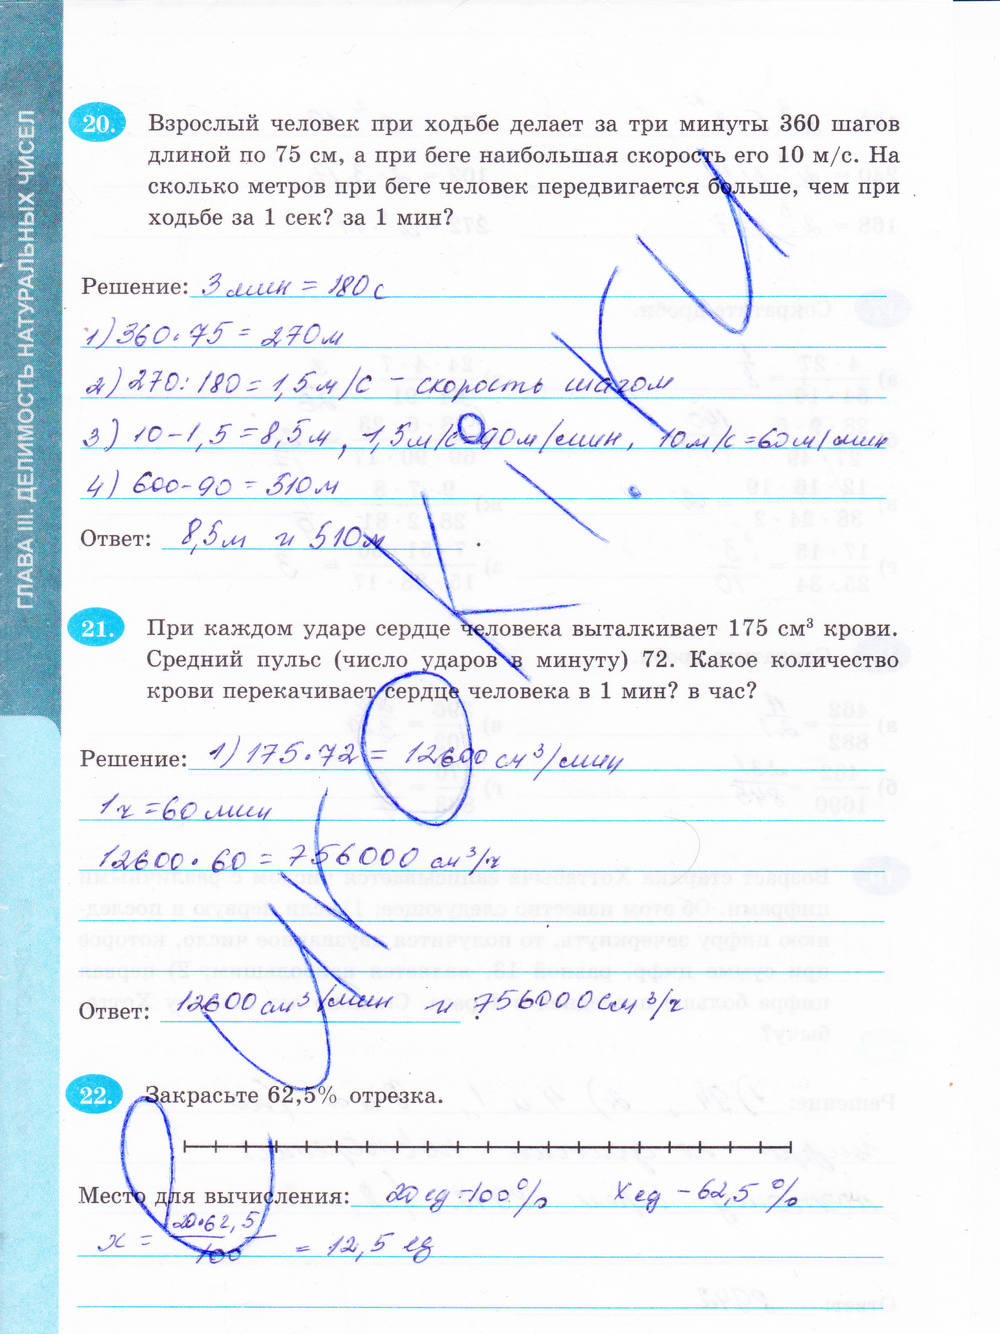 ГЛАВА III. ДЕЛИМОСТЬ НАТУРАЛЬНЫХ ЧИСЕЛ
20. Взрослый человек при ходьбе делает за три минуты 360 шагов
длиной по 75 см, а при беге наибольшая скорость его 10 м/с. На
сколько метров при беге человек передвигается больше, чем при
ходьбе за 1 сек? за 1 мин?
Решение: 3 мин = 180 с
1) 360·75 = 270м
2) 270:180 = 1,5 м/с – скорость шагом
3) 10-1,5=8,5м, 1,5м/с=90м/мин, 10м/с=60м/мин
4) 600-90 = 510м
Ответ: 8,5м и 510м .
21. При каждом ударе сердце человека выталкивает 175 см³ крови.
Средний пульс (число ударов в минуту) 72. Какое количество
крови перекачивает сердце человека в 1 мин? в час?
Решение: 1) 175·72 = 12600 см³/мин
1ч = 60 мин
12600·60 = 756000 см³/ч
Ответ: 12600 см³/мин и 756000 см³/ч .
22. Закрасьте 62,5% отрезка.
Место для вычисления: 20 ед - 100% X ед - 62,5%
x = 20·62,5 / 100 = 12,5 ед